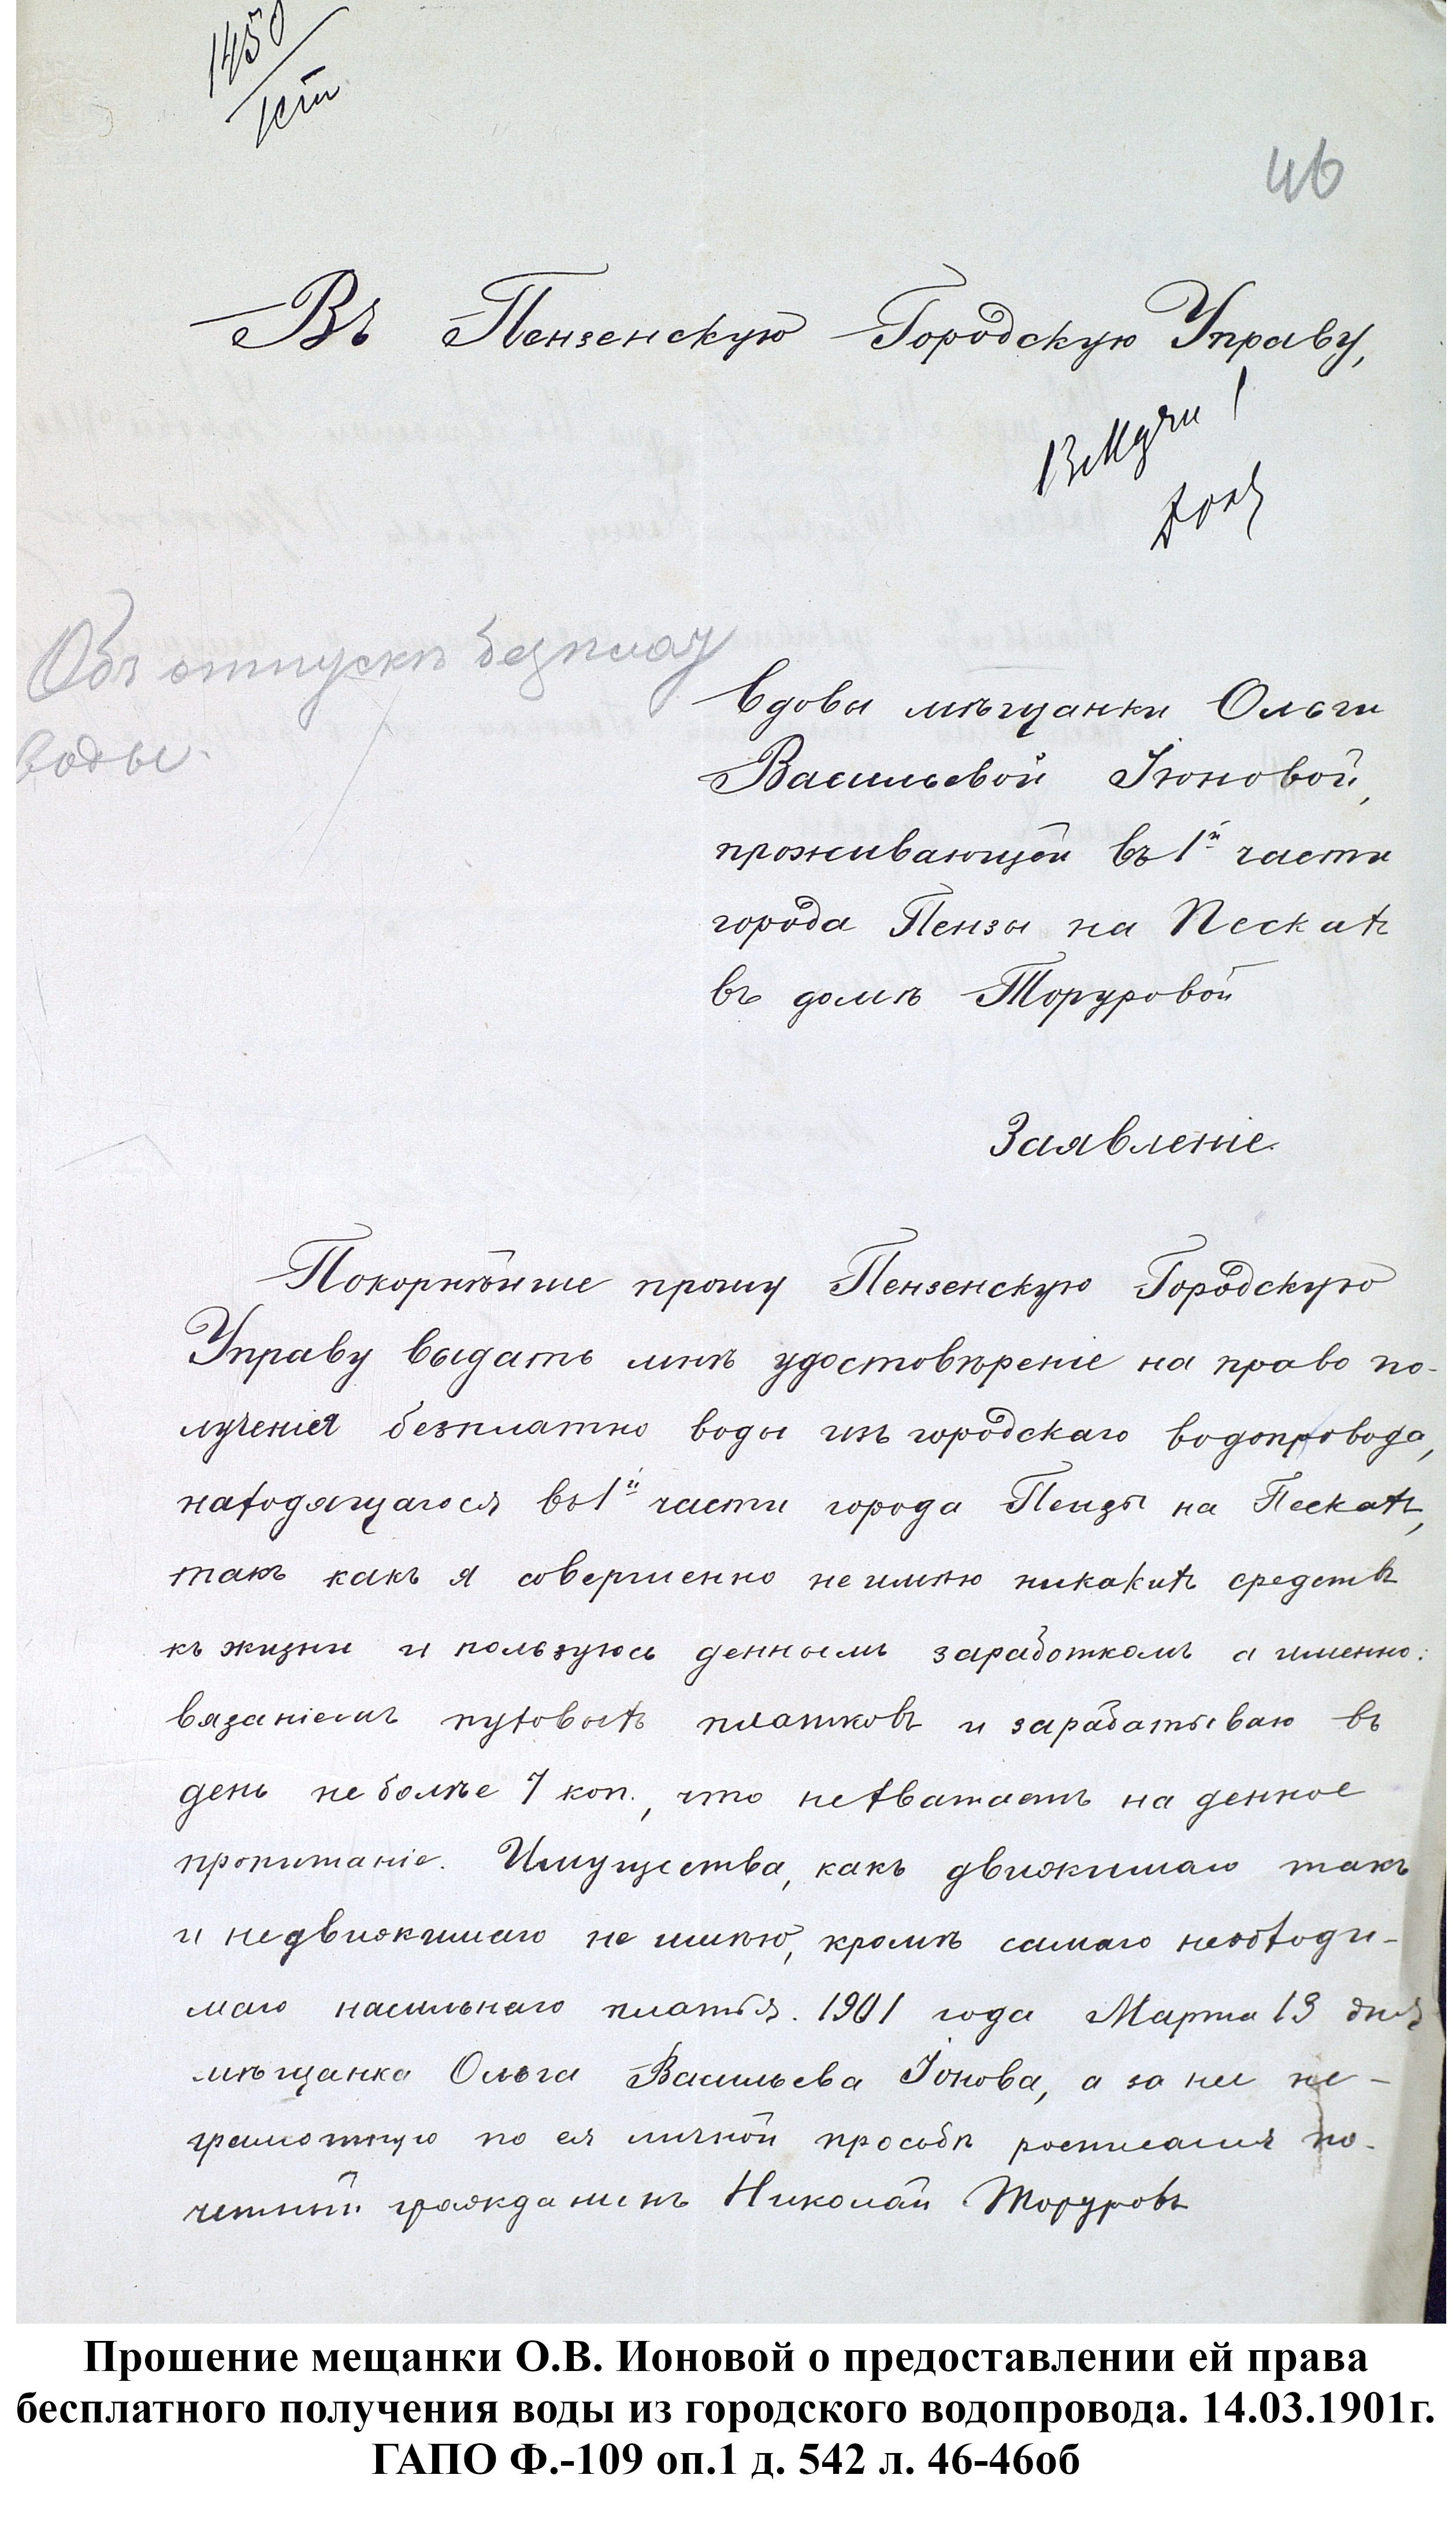 1450
1 ст
46
Въ Пензенскую Городскую Управу,
Объ отпускѣ безплат
воды.
Вдовы мѣщанки Ольги
Васильевой Іоновой,
проживающей въ 1й части
города Пензы на Пескахъ
въ домѣ Торуровой
Заявленіе.
Покорнѣйше прошу Пензенскую Городскую
Управу выдать мнѣ удостовѣреніе на право по-
лученія безплатно воды изъ городскаго водопровода,
находящагося въ 1й части города Пензы на Пескахъ,
такъ какъ я совершенно не имѣю никакихъ средствъ
къ жизни и пользуюсь деннымъ заработкомъ а именно:
вязаніемъ пуховыхъ платковъ и зарабатываю въ
день не болѣе 7 коп., что не хватаетъ на денное
пропитаніе. Имущества, какъ движимаго такъ
и недвижимаго не имѣю, кромѣ самаго необходи-
маго насильнаго платья. 1901 года Марта 13 дня
мѣщанка Ольга Васильева Іонова, а за нее не-
грамотную по ея личной просьбѣ росписался по-
четный гражданинъ Николай Торуровъ
Прошение мещанки О.В. Ионовой о предоставлении ей права
бесплатного получения воды из городского водопровода. 14.03.1901г.
ГАПО Ф.-109 оп.1 д. 542 л. 46-46об